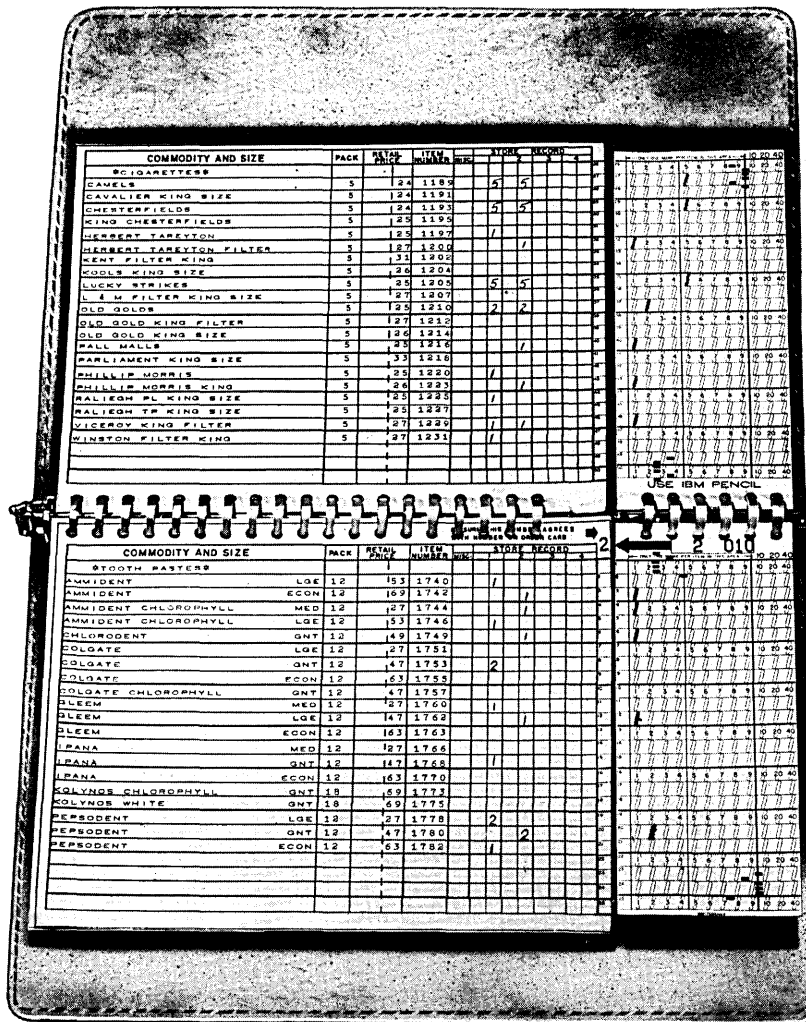 COMMODITY AND SIZE PACK RETAIL PRICE ITEM NUMBER MISC. STORE RECORD 1 2 3 4
*CIGARETTES*
CAMELS 5 24 1189 5 5
CAVALIER KING SIZE 5 24 1191
CHESTERFIELDS 5 24 1193 5 5
KING CHESTERFIELDS 5 25 1195
HERBERT TAREYTON 5 25 1197 1
HERBERT TAREYTON FILTER 5 27 1200 1
KENT FILTER KING 5 31 1202
KOOLS KING SIZE 5 26 1204
LUCKY STRIKES 5 25 1205 5 5
L & M FILTER KING SIZE 5 27 1207
OLD GOLDS 5 25 1210 2 2
OLD GOLD KING FILTER 5 27 1212
OLD GOLD KING SIZE 5 26 1214
PALL MALLS 5 25 1216 1
PARLIAMENT KING SIZE 5 33 1218
PHILLIP MORRIS 5 25 1220 1
PHILLIP MORRIS KING 5 26 1223 1
RALIEGH PL KING SIZE 5 25 1225 1
RALIEGH TP KING SIZE 5 25 1227
VICEROY KING FILTER 5 27 1229 1 1
WINSTON FILTER KING 5 27 1231 1
USE IBM PENCIL
NUMBER AGREES
WITH NUMBER ON ORDER CARD 2
2 010
COMMODITY AND SIZE PACK RETAIL PRICE ITEM NUMBER MISC. STORE RECORD 1 2 3 4
*TOOTH PASTES*
AMMIDENT LGE 12 53 1740 1
AMMIDENT ECON 12 69 1742 1
AMMIDENT CHLOROPHYLL MED 12 27 1744 1
AMMIDENT CHLOROPHYLL LGE 12 53 1746 1
CHLORODENT GNT 12 49 1749 1
COLGATE LGE 12 27 1751
COLGATE GNT 12 47 1753 2
COLGATE ECON 12 63 1755
COLGATE CHLOROPHYLL GNT 12 47 1757
GLEEM MED 12 27 1760 1
GLEEM LGE 12 47 1762 1
GLEEM ECON 12 63 1763
IPANA MED 12 27 1766
IPANA GNT 12 47 1768 1
IPANA ECON 12 63 1770
KOLYNOS CHLOROPHYLL GNT 18 69 1773
KOLYNOS WHITE GNT 18 69 1775
PEPSODENT LGE 12 27 1778 2
PEPSODENT GNT 12 47 1780 2
PEPSODENT ECON 12 63 1782 1